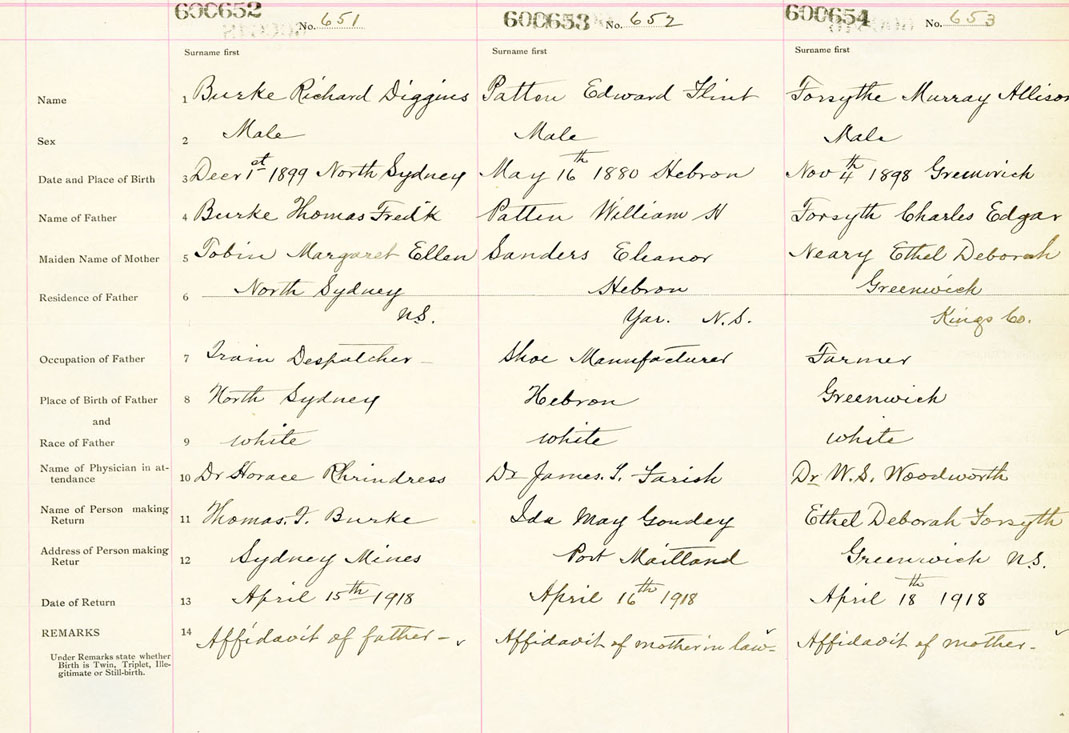 600652 No. 651 600653 No. 652 600654 No. 653
Surname first Surname first Surname first
Name 1 Burke Richard Diggins Patten Edward Flint Forsythe Murray Allison
Sex 2 Male Male Male
Date and Place of Birth 3 Decr 1st 1899 North Sydney May 16th 1880 Hebron Nov 4th 1898 Greenwich
Name of Father 4 Burke Thomas Fredk Patten William H Forsyth Charles Edgar
Maiden Name of Mother 5 Tobin Margaret Ellen Sanders Eleanor Neary Ethel Deborah
Residence of Father 6 North Sydney Hebron Greenwich
N.S. Yar. N.S. Kings Co.
Occupation of Father 7 Train Despatcher Shoe Manufacturer Farmer
Place of Birth of Father 8 North Sydney Hebron Greenwich
and
Race of Father 9 white white white
Name of Physician in at-
tendance 10 Dr Horace Rhrindress Dr James. T. Farish Dr W. S. Woodworth
Name of Person making
Return 11 Thomas. F. Burke Ida May Goudey Ethel Deborah Forsyth
Address of Person making
Retur 12 Sydney Mines Port Maitland Greenwich N.S.
Date of Return 13 April 15th 1918 April 16th 1918 April 18th 1918
REMARKS 14 Affidavit of father - Affidavit of mother in law - Affidavit of mother -
Under Remarks state whether
Birth is Twin, Triplet, Ille-
gitimate or Still-birth.